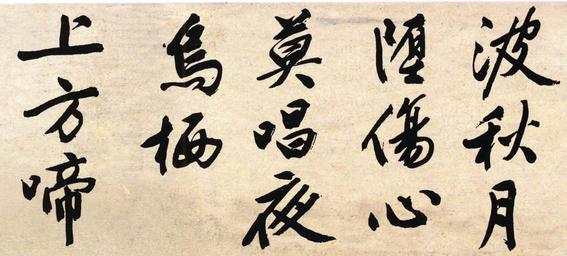 波秋月
堕傷心
莫唱夜
烏栖
上方啼